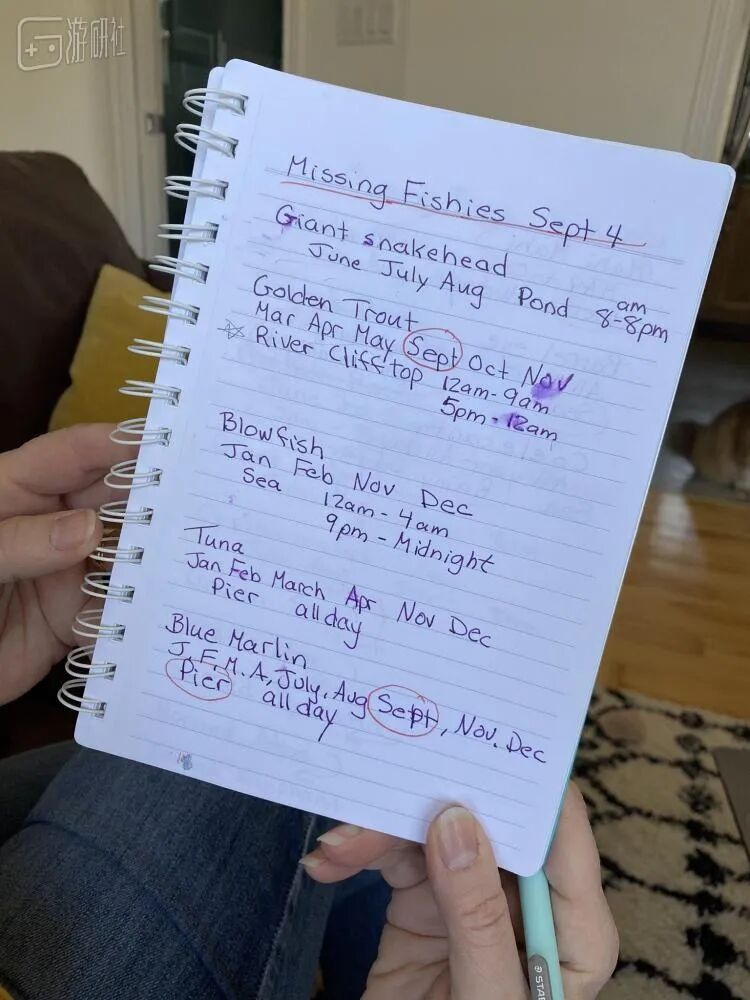 游研社
Missing Fishies Sept 4
Giant snakehead
June July Aug Pond 8am-8pm
Golden Trout
Mar Apr May Sept Oct Nov
☆ River Clifftop 12am-9am
5pm-12am
Blowfish
Jan Feb Nov Dec
Sea 12am-4am
9pm-Midnight
Tuna
Jan Feb March Apr Nov Dec
Pier all day
Blue Marlin
J, F, M. A, July, Aug Sept, Nov. Dec
Pier all day